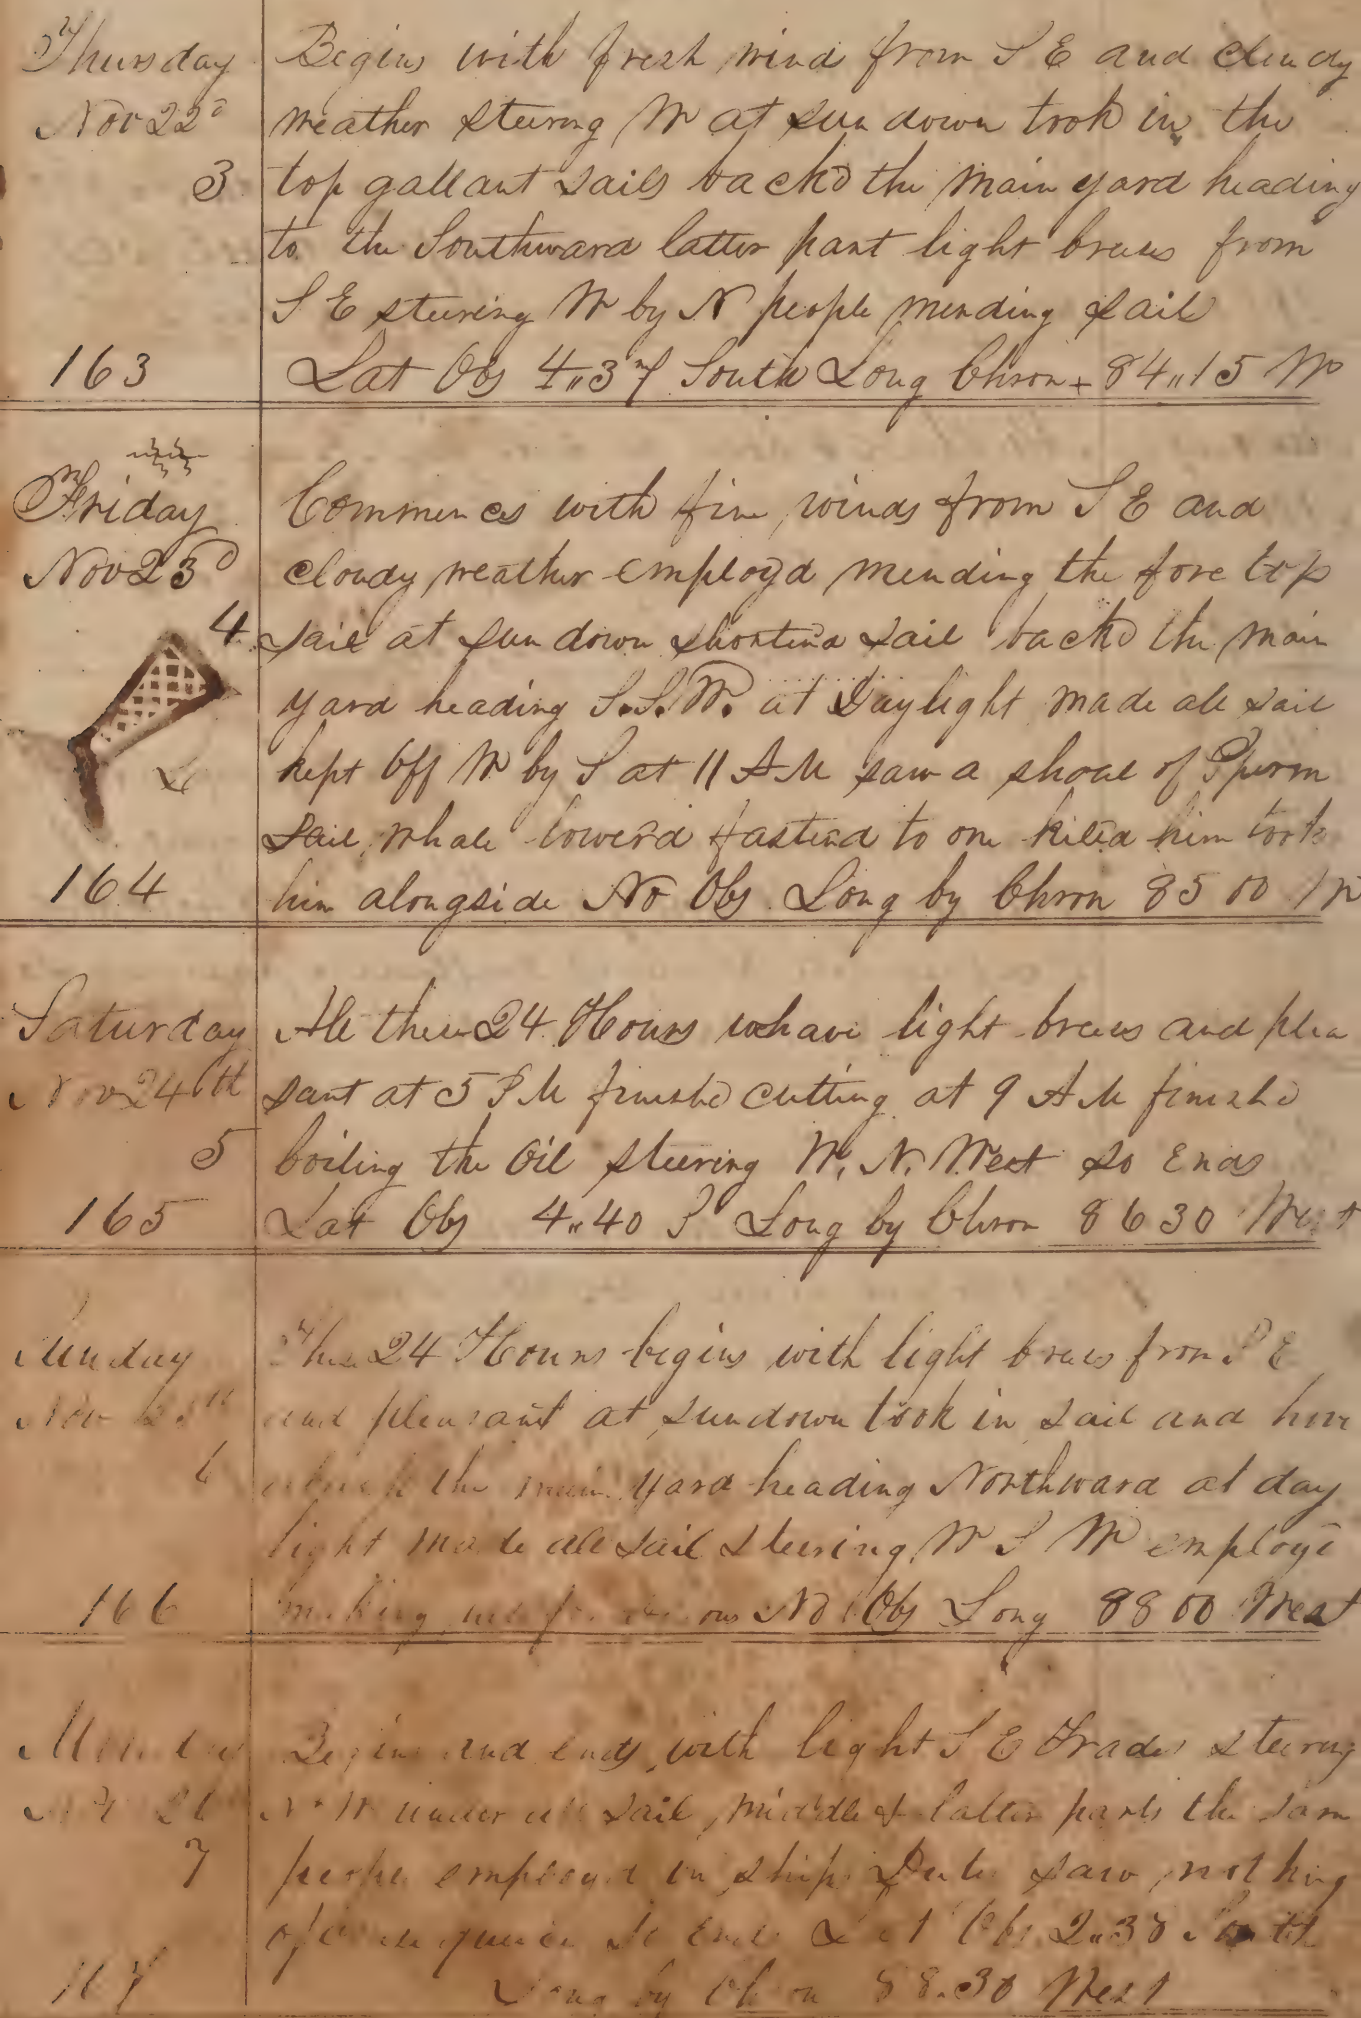 Thursday Begins with fresh wind from S E and cloudy
Nov 22d weather steering W at sun down took in the
3 top gallant sails backd the main yard heading
to the Southward latter part light breeses from
S E steering W by N people mending sail
163 Lat Obs 4,,37 South Long Chron 84,,15 W
Friday Commences with fine winds from S E and
Nov 23d cloudy weather employd mending the fore top
4 sail at sun down shortend sail backd the main
yard heading S.S.W. at Daylight made all sail
kept Off W by S at 11 A M saw a shoal of Spurm
sail whale lowerd fastend to one killd him took
164 him alongside No Obs Long by Chron 85 00 W
Saturday All these 24 Hours we have light breeses and plea
Nov 24th sant at 5 P M finishd cutting at 9 A M finishd
5 boiling the Oil steering W. N. West so Ends
165 Lat Obs 4,,40 S Long by Chron 86 30 West
Sunday This 24 Hours begins with light breeses from S E
Nov 25th and pleasant at sundown took in sail and hove
6 aback the main yard heading Northward at day
light made all sail steering W S W employd
166 making No Obs Long 88 00 West
Monday Begins and ends with light S E Trades steering
26 N W under all sail middle & latter parts the same
7 people employd in ships Duties saw nothing
of consequence So Ends Lat Obs 2,,38 South
167 Long by Chron 88.30 West